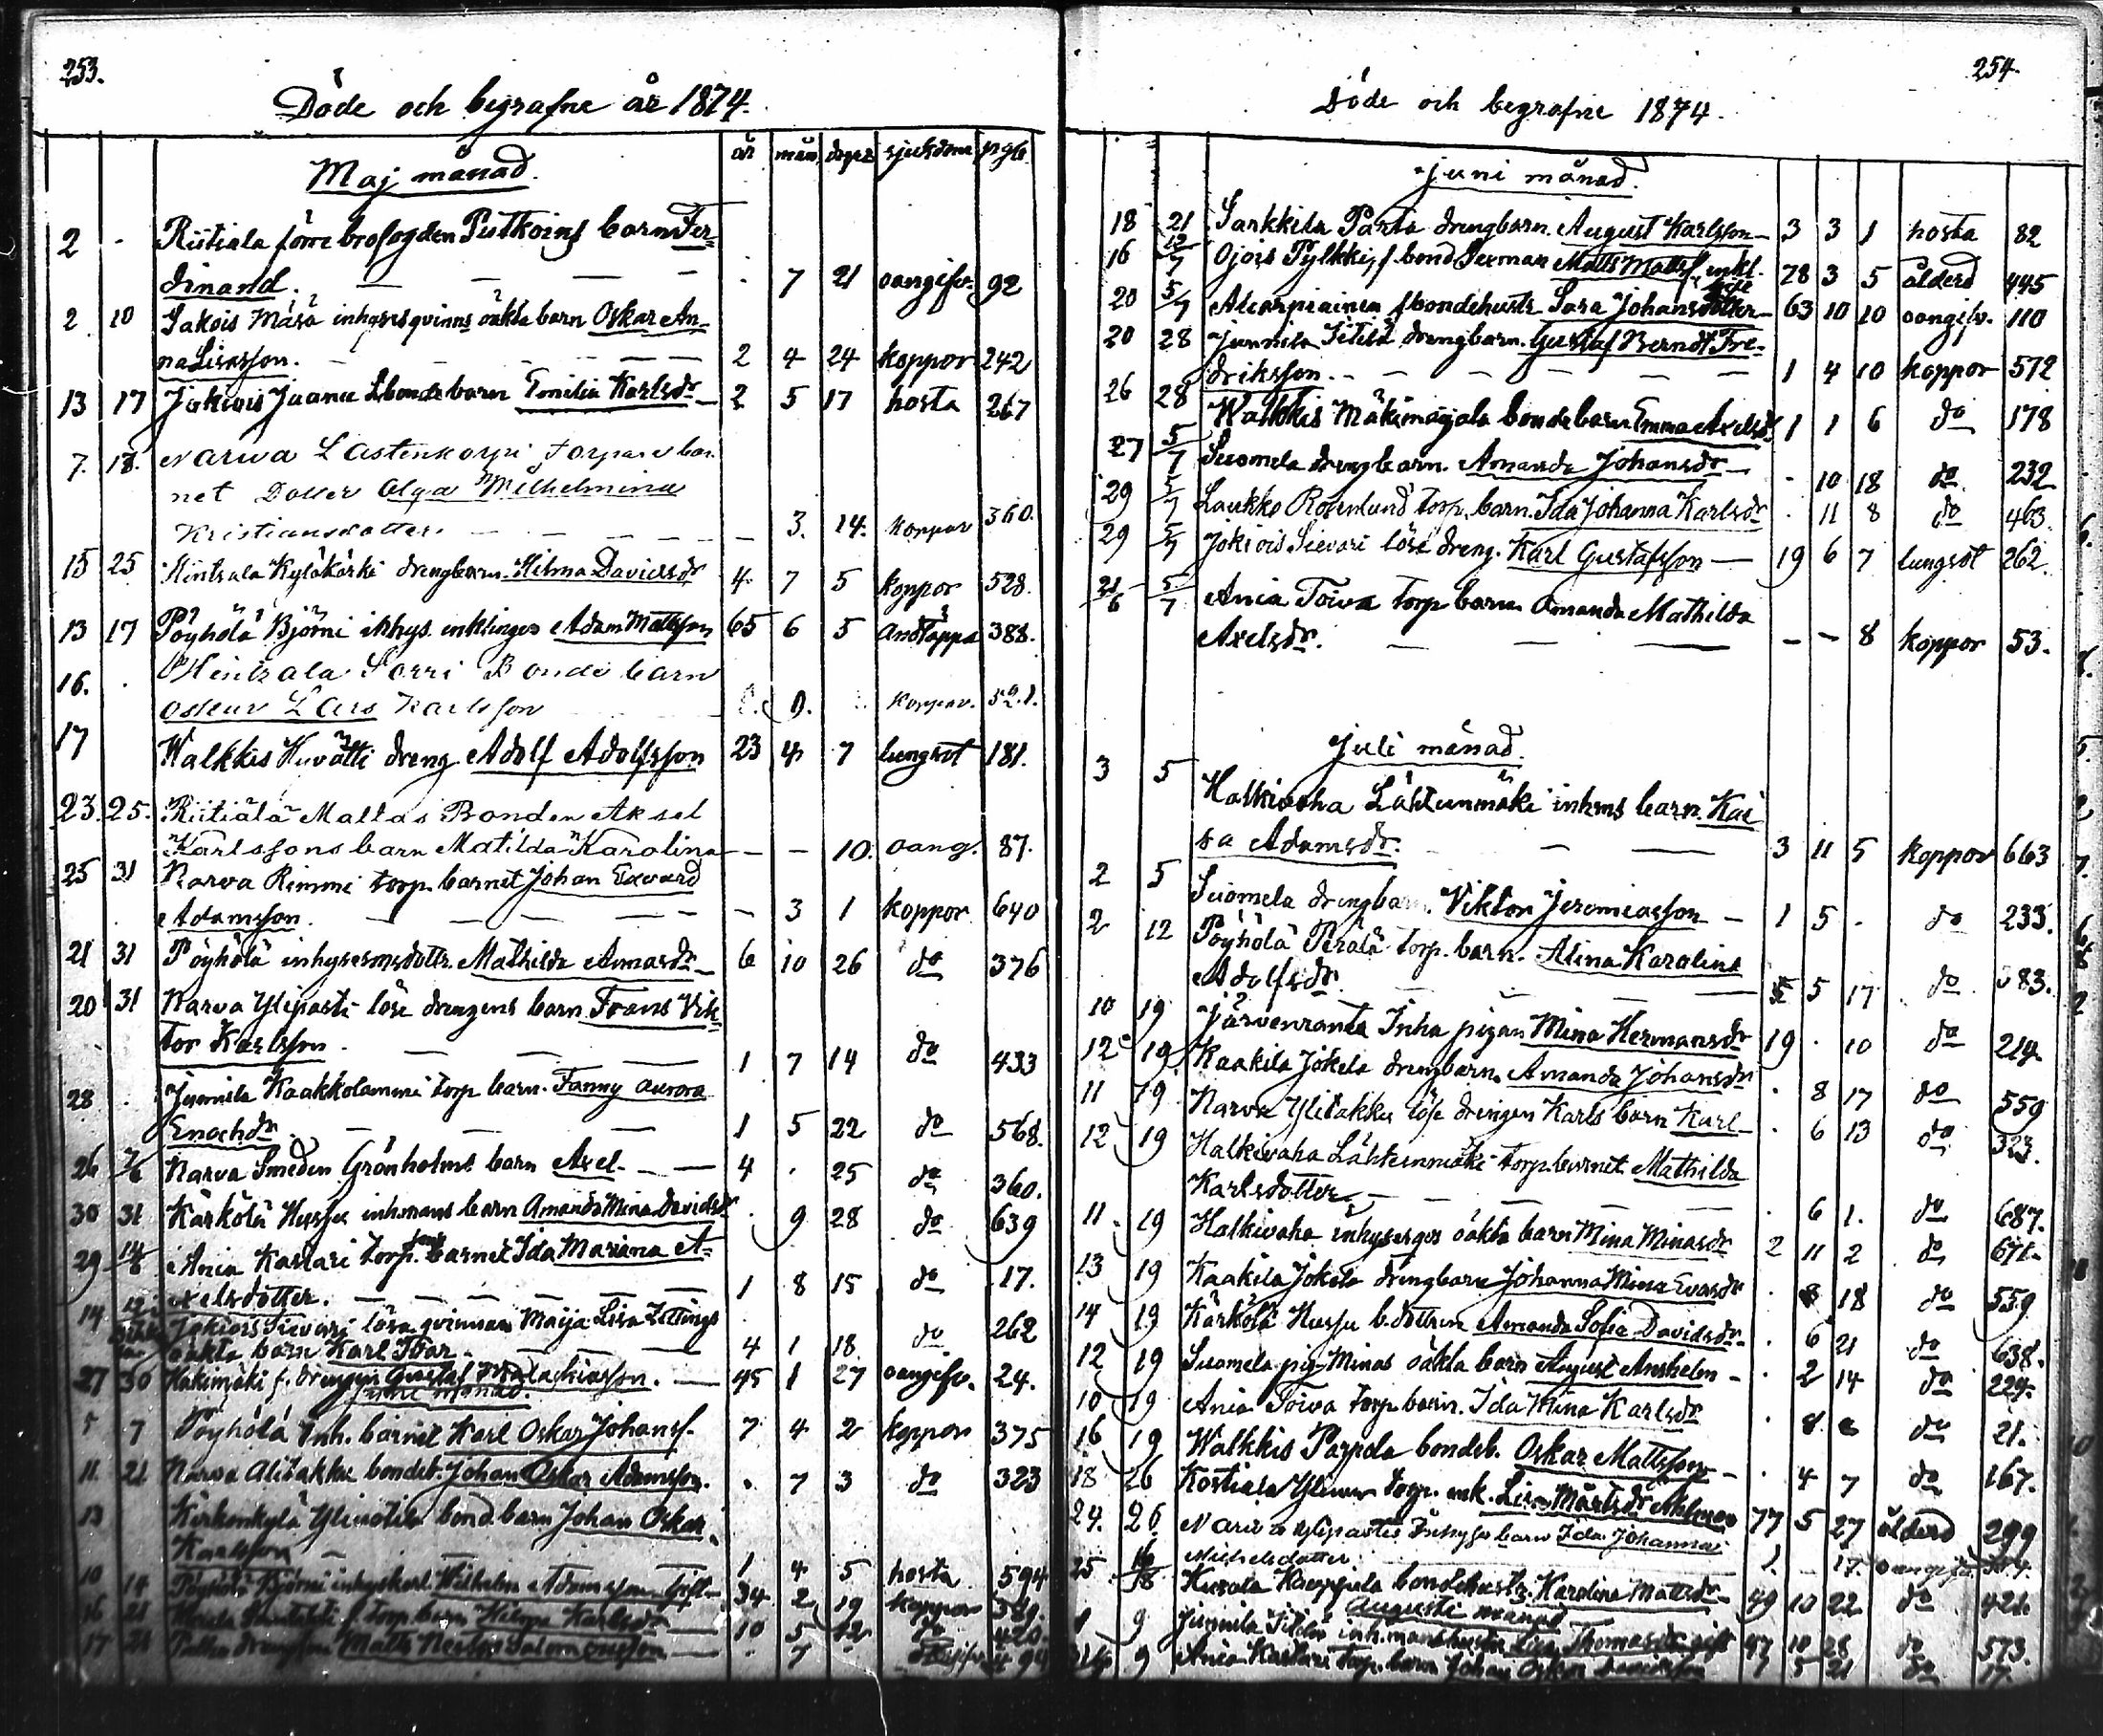 253.
Döde och begrafne år 1874.
år mån dagar sjukdom pgb.
Maj månad.
2 - Riitiala förre brofogden Putkoins barn Fer-
dinand. — — — . 7 21 oangifv. 92
2 10 Sakois Mäsä inhysesqvinns oäkta barn Oskar An-
naLisasson. — — — 2 4 24 koppor 242
13 17 Jokiois Juanu bonde barn Emilia Karlsdr — 2 5 17 hosta 267
7. 18. Narwa Lastenkorpi Torpare bar-
net Dotter Olga Wilhelmina
Kristiansdotter. — — — 3. 14. koppor 360.
15 25 Hintsala Kyläkärki drengbarn. Hilma Davidsdr 4. 7 5 koppor 528.
13 17 Pöyhölä Björni inhys. enklingen Adam Mattsson 65 6 5 andtäppa 388.
16. . Hintsala Sorri Bonde barn
Oskar Lars Karlsson 9. koppor. 521.
17 Walkkis Huvatti dreng Adolf Adolfsson 23 4 7 lungsot 181.
23. 25. Riitiälä Mattas Bonden Aksel
Karlssons barn Matilda Karolina — — 10. oang. 87.
25 31 Narva Rimmi torp. barnet Johan Edvard
Adamsson. — — — 3 1 koppor 640
21 31 Pöyhölä inhysesmsdottr. Mathilda Annasdr — 6 10 26 do 376
20 31 Narva Ylipasti löse drengens barn Frans Vik-
tor Karlsson. — — — 1 7 14 do 433
28 . Junnila Kaakkolammi torp barn. Fanny Aurora
Enochdr — — — 1 5 22 do 568.
26 7/6 Narva Smeden Grönholms barn Axel. — — 4 . 25 do 360.
30 31 Kärkölä Hussu inhmans barn Amanda Mina Davidsdr . 9 28 do 639
29 14/6 Ania Kastari torp. barnet Ida Mariana A-
xelsdotter. — — — 1 8 15 do 17.
14 Jokiois Sievari lösa qvinnan Maija Lisa
oäkta barn Karl Ivar. — — 4 1 18 do 262
27 30 Hakimäki f. drengen Gustaf Malackiasson. — 45 1 27 oangifv. 24.
Juni månad.
5 7 Pöyhölä Inh. barnet Karl Oskar Johanss. 7 4 2 koppor 375
11 21 Narva Alitakku bondeb. Johan Oskar Adamsson. . 7 3 do 323
13 Kirkonkylä Ylinotila bond. barn Johan Oskar
Karlsson — 1 4 5 hosta 594
10 14 Pöyhölä Björni inhyskarl. Wilhelm Adamsson Gift — 34 2 19 koppor 389.
16 21 f. torp. barn Karlsdr — 10 5 12 do 420.
17 21 Matts — . 7
254.
Döde och begrafne 1874.
Juni månad.
18 21 Sarkkila Parta drengbarn. August Karlsson — 3 3 1 hosta 82
16 12/7 Ojois Pylkki, f bond Sexman Matts Matts. enkl. 78 3 5 ålderd 445
20 5/7 f bondehustr Sara Johansdotter — 63 10 10 oangifv. 110
20 28 Junnila drengbarn. Gustaf Berndt Fre-
driksson. — — — 1 4 10 koppor 572
26 28 Walkkis Mäkimaijala bonde barn Emma Axelsdr 1 1 6 do 178
27 5/7 Suomela drengbarn. Amanda Johansdr — . 10 18 do 232
29 5/7 Laukko Rosenlund torp. barn. Ida Johanna Karlsdr . 11 8 do 463.
29 5/7 Jokiois Sievari löse dreng. Karl Gustafsson — 19 6 7 lungsot 262.
21/6 5/7 Ania Toiva torp barn Amanda Mathilda
Axelsdr. — — — — — 8 koppor 53.
Juli månad.
3 5 Halkivaha Lähteenmäki inhms barn. Kai
sa Adamsdr. — — — 3 11 5 koppor 663
2 5 Suomela drengbarn. Viktor Jeremiasson — 1 5 . do 233.
2 12 Pöyhölä Perälä torp. barn. Alina Karolina
Adolfsdr. — — 5 17 do 383.
10 19 Järvenranta Inha pigan Mina Hermansdr 19 . 10 do 214.
12 19 Kaakila Jokela drengbarn. Amanda Johansdr . 8 17 do 559
11 19 Narva Ylitakku löse drengen Karls barn Karl — . 6 13 do 323.
12 19 Halkivaha Lähteenmäki torp. barnet Mathilda
Karlsdotter. — — — . 6 1. do 687.
11. 19 Halkivaha inhysesqvs oäkta barn Mina Minasdr 2 11 2 do 671.
13 19 Kaakila Jokela drengbarn Johanna Mina Evasdr . 8 18 do 559
14 19 Kärkölä Hussu b. dottren Amanda Sofia Davidsdr. . 6 21 do 638.
12 19 Suomela pig. Minas oäkta barn August Anshelm — . 2 14 do 224.
10 19 Ania Toiva torp. barn. Ida Mina Karlsdr . 8 do 21.
16 19 Walkkis Parpola bondeb. Oskar Mattsson — . 4 7 do 167.
18 26 Kostiala torp. enk. Lisa Mårtsdr Ahlman 77 5 27 ålderd 299
24. 26. Narva Ylipastis Inhyse barn Ida Johanna
Michelsdotter — 17. oangifv.
25 16/8 Kurala bondehustr. Karolina Mattsdr — 49 10 22 do 421.
Augusti månad
1 9 Junnila inh. manshustru Lisa Thomasdr gift 47 10 28 do 573.
9 Ania Kastari torp. barn Johan Oskar Davidsson 1 5 21 do 17.